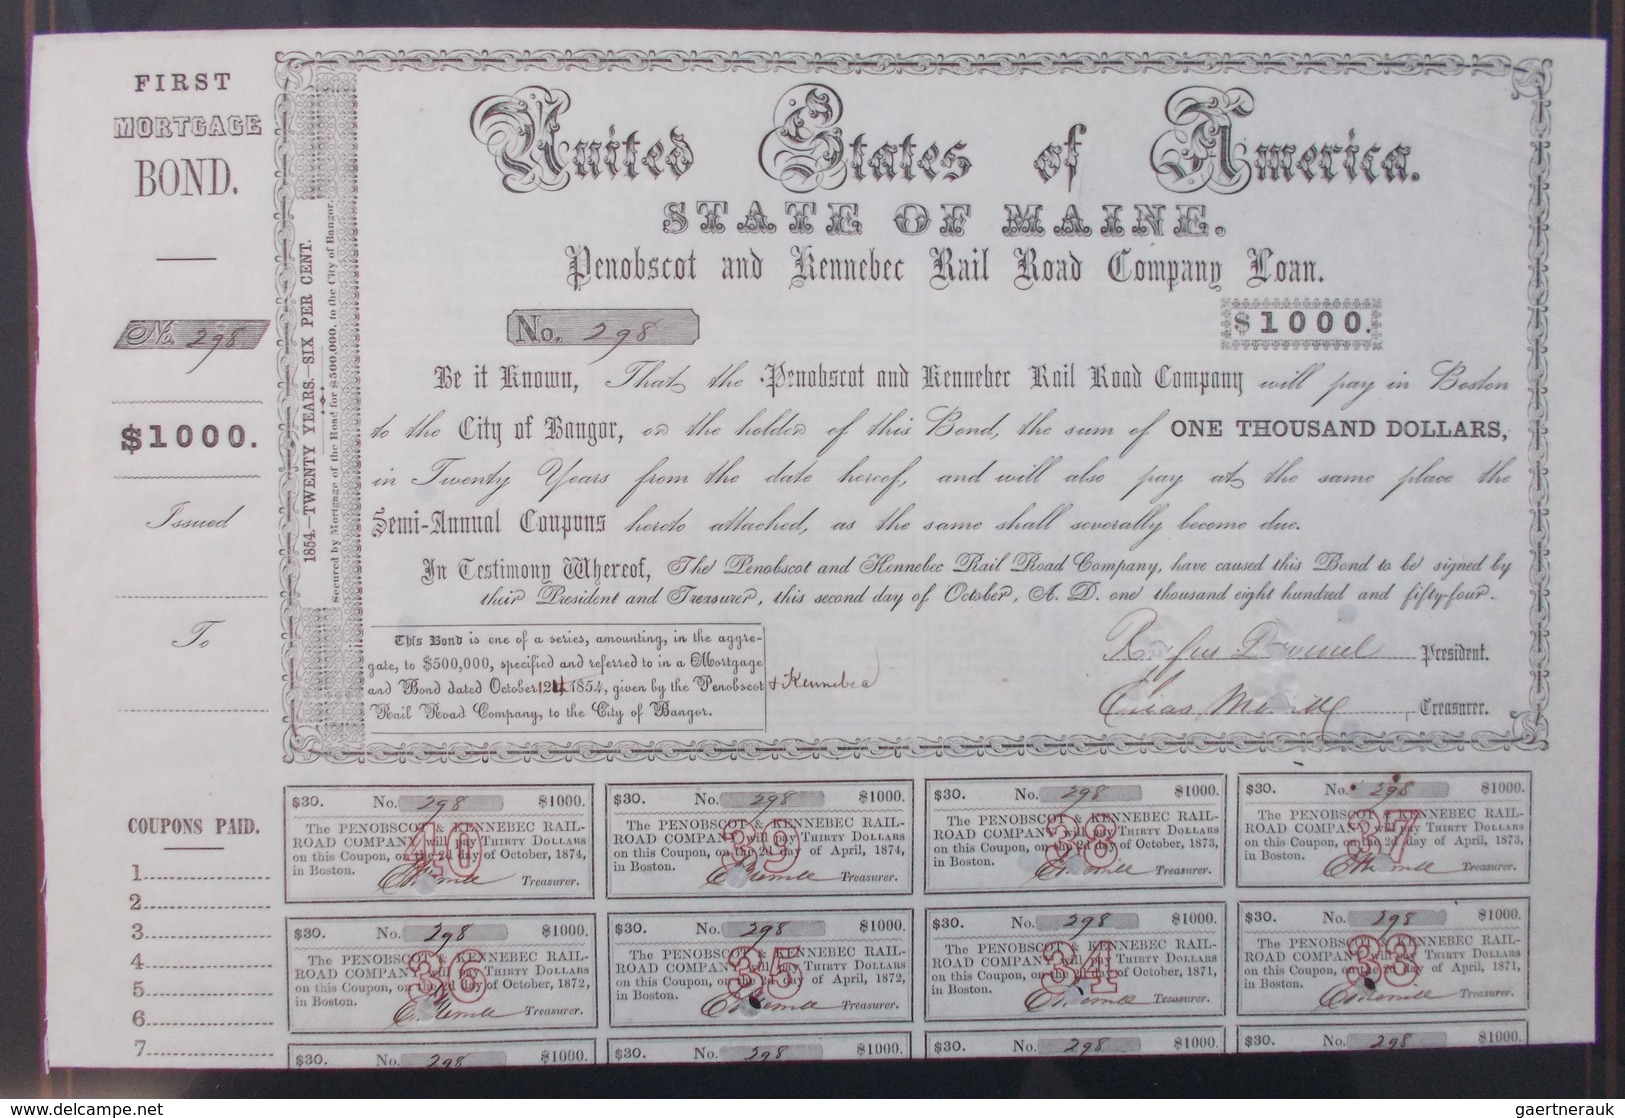 FIRST
MORTGAGE
BOND.
No. 298
$1000.
Issued
To
COUPONS PAID.
1
2
3
4
5
6
7
1854.—TWENTY YEARS.—SIX PER CENT.
Secured by Mortgage of the Road for $500,000, to the City of Bangor.
United States of America.
STATE OF MAINE.
Penobscot and Kennebec Rail Road Company Loan.
No. 298
$1000.
Be it Known, That the Penobscot and Kennebec Rail Road Company will pay in Boston
to the City of Bangor, or the holder of this Bond, the sum of ONE THOUSAND DOLLARS,
in Twenty Years from the date hereof, and will also pay at the same place the
Semi-Annual Coupons hereto attached, as the same shall severally become due.
In Testimony Whereof, The Penobscot and Kennebec Rail Road Company, have caused this Bond to be signed by
their President and Treasurer, this second day of October, A. D. one thousand eight hundred and fifty-four.
This Bond is one of a series, amounting, in the aggre-
gate, to $500,000, specified and referred to in a Mortgage
and Bond dated October 1854, given by the Penobscot & Kennebec
Rail Road Company, to the City of Bangor.
Rufus President.
Treasurer.
$30. No. 298 $1000.
The PENOBSCOT & KENNEBEC RAIL-
ROAD COMPANY will pay THIRTY DOLLARS
on this Coupon, on the 2d day of October, 1874,
in Boston.
40
Treasurer.
$30. No. 298 $1000.
The PENOBSCOT & KENNEBEC RAIL-
ROAD COMPANY will pay THIRTY DOLLARS
on this Coupon, on the 2d day of April, 1874,
in Boston.
39
Treasurer.
$30. No. 298 $1000.
The PENOBSCOT & KENNEBEC RAIL-
ROAD COMPANY will pay THIRTY DOLLARS
on this Coupon, on the 2d day of October, 1873,
in Boston.
38
Treasurer.
$30. No. 298 $1000.
The PENOBSCOT & KENNEBEC RAIL-
ROAD COMPANY will pay THIRTY DOLLARS
on this Coupon, on the 2d day of April, 1873,
in Boston.
37
Treasurer.
$30. No. 298 $1000.
The PENOBSCOT & KENNEBEC RAIL-
ROAD COMPANY will pay THIRTY DOLLARS
on this Coupon, on the 2d day of October, 1872,
in Boston.
36
Treasurer.
$30. No. 298 $1000.
The PENOBSCOT & KENNEBEC RAIL-
ROAD COMPANY will pay THIRTY DOLLARS
on this Coupon, on the 2d day of April, 1872,
in Boston.
35
Treasurer.
$30. No. 298 $1000.
The PENOBSCOT & KENNEBEC RAIL-
ROAD COMPANY will pay THIRTY DOLLARS
on this Coupon, on the 2d day of October, 1871,
in Boston.
34
Treasurer.
$30. No. 298 $1000.
The PENOBSCOT & KENNEBEC RAIL-
ROAD COMPANY will pay THIRTY DOLLARS
on this Coupon, on the 2d day of April, 1871,
in Boston.
33
Treasurer.
$30. No. 298 $1000.
$30. No. 298 $1000.
$30. No. 298 $1000.
$30. No. 298 $1000.
www.delcampe.net
gaertnerauk